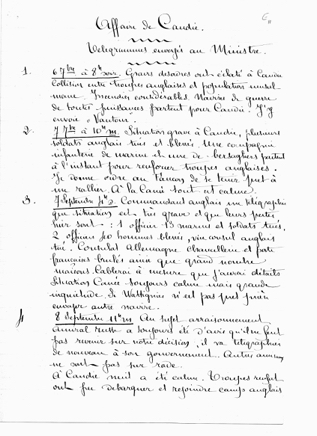 Affaire de Candie.
Télégrammes envoyés au Ministre.
1. 6 7bre à 8h soir. Graves désordres ont éclaté à Candie
Collision entre troupes anglaises et population musul-
mane. Incendies considérables. Navires de guerre
de toutes puissances partent pour Candie. J'y
envoie "Vautour".
2. 7 7bre à 10h m. Situation grave à Candie, plusieurs
soldats anglais tués et blessés. Une compagnie
infanterie de marine et une de bersagliers partent
à l'instant pour renforcer troupes anglaises.
Je donne ordre au de se tenir prêt à
me rallier. À la Canée tout est calme.
3. 7 Septembre Commandant anglais me télégraphie
que situation est très grave et que leurs pertes
hier sont: 1 officier 13 marins et soldats tués,
2 officiers 40 hommes blessés, vice consul anglais
tué. Consulat Allemagne et poste
français brûlés ainsi que grand nombre
maisons
Situation Canée toujours calme mais grande
inquiétude. Le Wattignies n'est pas prêt puis
envoyer autre navire.
4 8 Septembre 11h m. Au sujet arraisonnement
Amiral russe a toujours été d'avis qu'il ne faut
pas revenir sur notre décision, il va télégraphier
de nouveau à son gouvernement. Autres
ne sont pas sur rade.
À Candie nuit a été calme. Troupes renfort
ont pu débarquer et rejoindre camp anglais